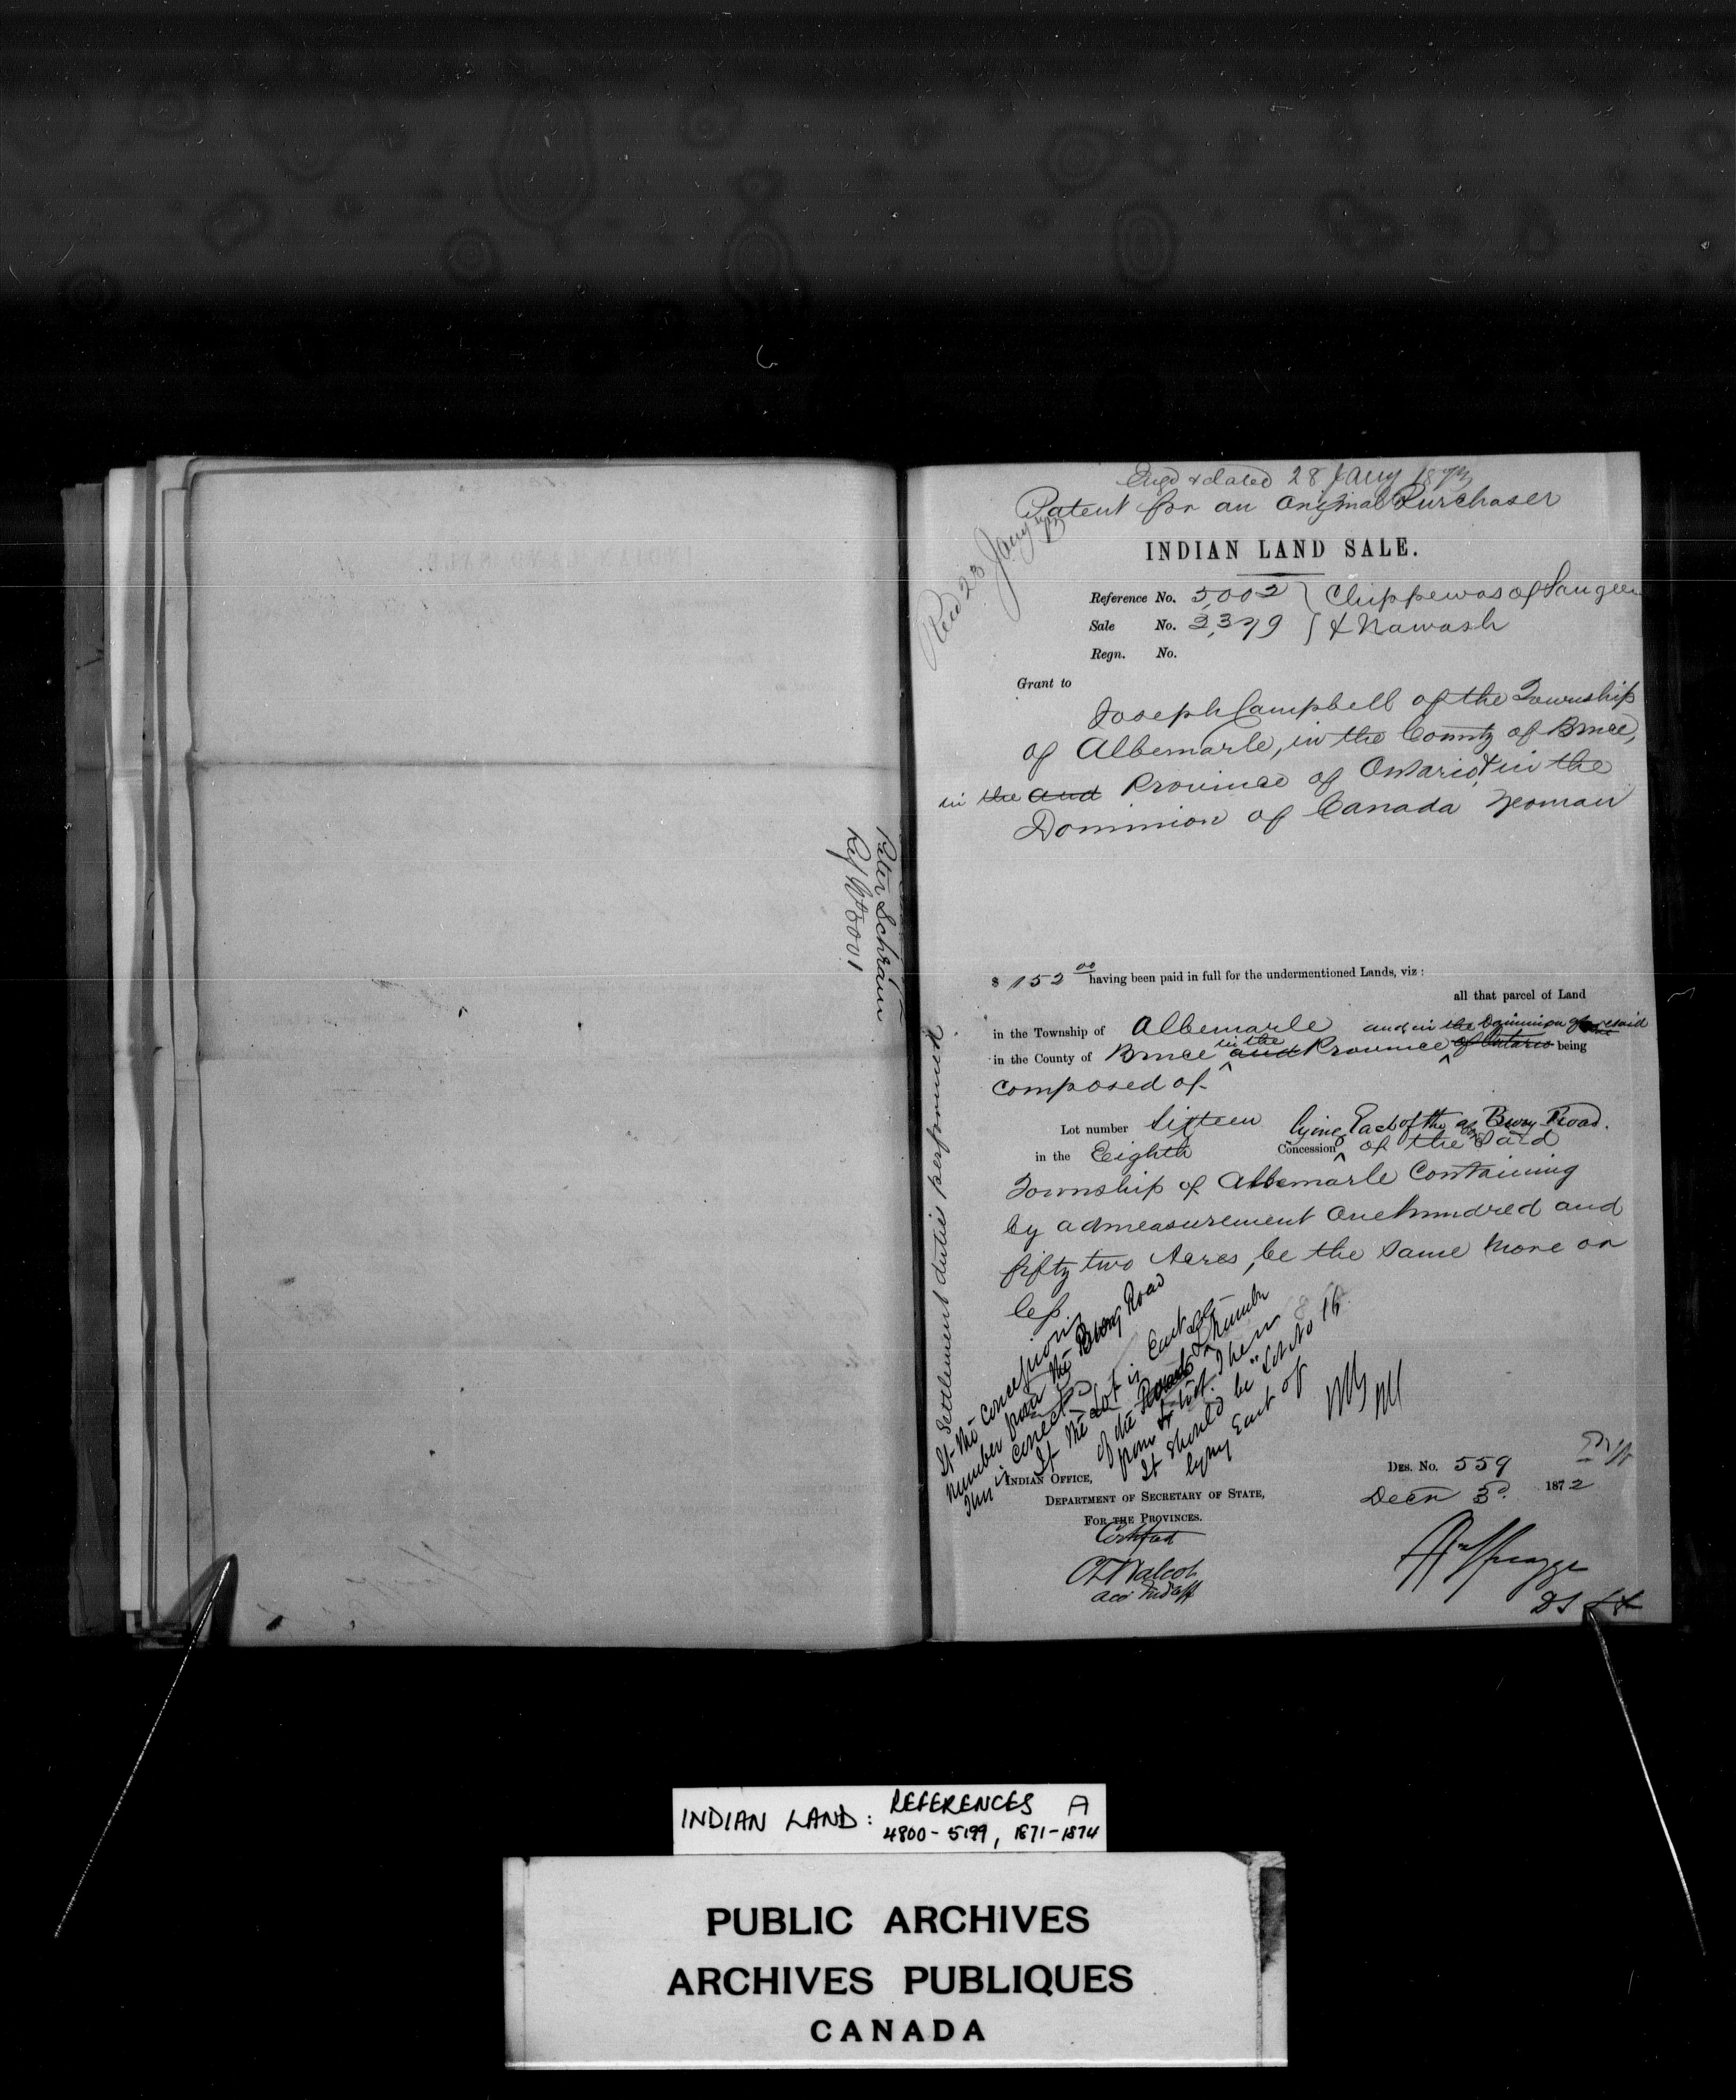 Peter Schram
Ref No 5001
Engd & dated 28 Jany 1873
Patent for an Original Purchaser
Recd 23 Jany 73
INDIAN LAND SALE.
Reference No. 5,002 } Chippewas of Saugeen
Sale No. 3,379 } & Nawash
Regn. No.
Grant to
Joseph Campbell of the Township
of Albemarle, in the County of Bruce,
in the and Province of Ontario, & in the
Dominion of Canada Yeoman
$ 152 00 having been paid in full for the undermentioned Lands, viz :
all that parcel of Land
in the Township of Albemarle and in the Dominion aforesaid
in the County of Bruce in the and Province of Ontario being
composed of
Lot number Sixteen lying East of the Bury Road.
in the Eighth Concession of the aforesaid
Township of Albemarle Containing
by admeasurement One hundred and
fifty two Acres, be the same more or
less.
Settlement duties performed
If the Concessions
number from the Bury Road
this is correct
If the Lot is East of
of the Road & number
from it West. Then
it should be "Lot No 16
lying East of
INDIAN OFFICE,
DEPARTMENT OF SECRETARY OF STATE,
FOR THE PROVINCES.
Certified
C T Walcot
Acct Ind Aff
DES. No. 559
Decr 3d. 1872
Wm Spragge
INDIAN LAND: REFERENCES A
4800-5199, 1871-1874
PUBLIC ARCHIVES
ARCHIVES PUBLIQUES
CANADA